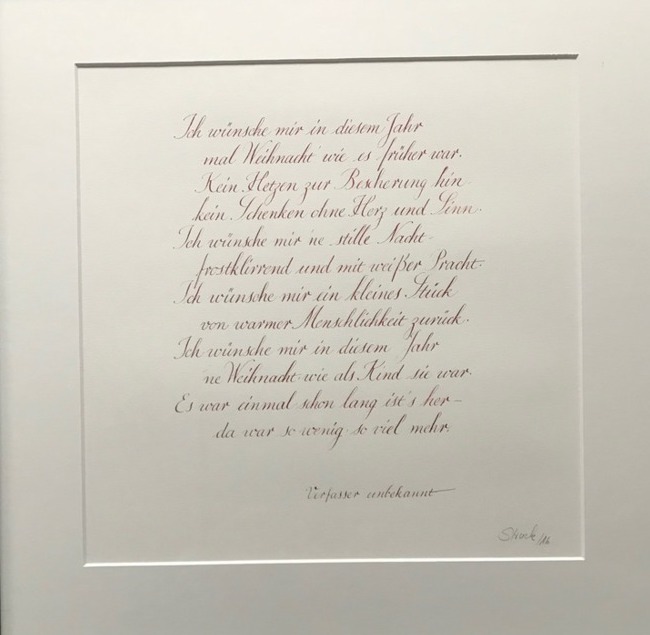 Ich wünsche mir in diesem Jahr
mal Weihnacht wie es früher war.
Kein Hetzen zur Bescherung hin
kein Schenken ohne Herz und Sinn.
Ich wünsche mir 'ne stille Nacht
frostklirrend und mit weißer Pracht.
Ich wünsche mir ein kleines Stück
von warmer Menschlichkeit zurück.
Ich wünsche mir in diesem Jahr
'ne Weihnacht wie als Kind sie war.
Es war einmal schon lang ist's her –
da war so wenig so viel mehr.
Verfasser unbekannt